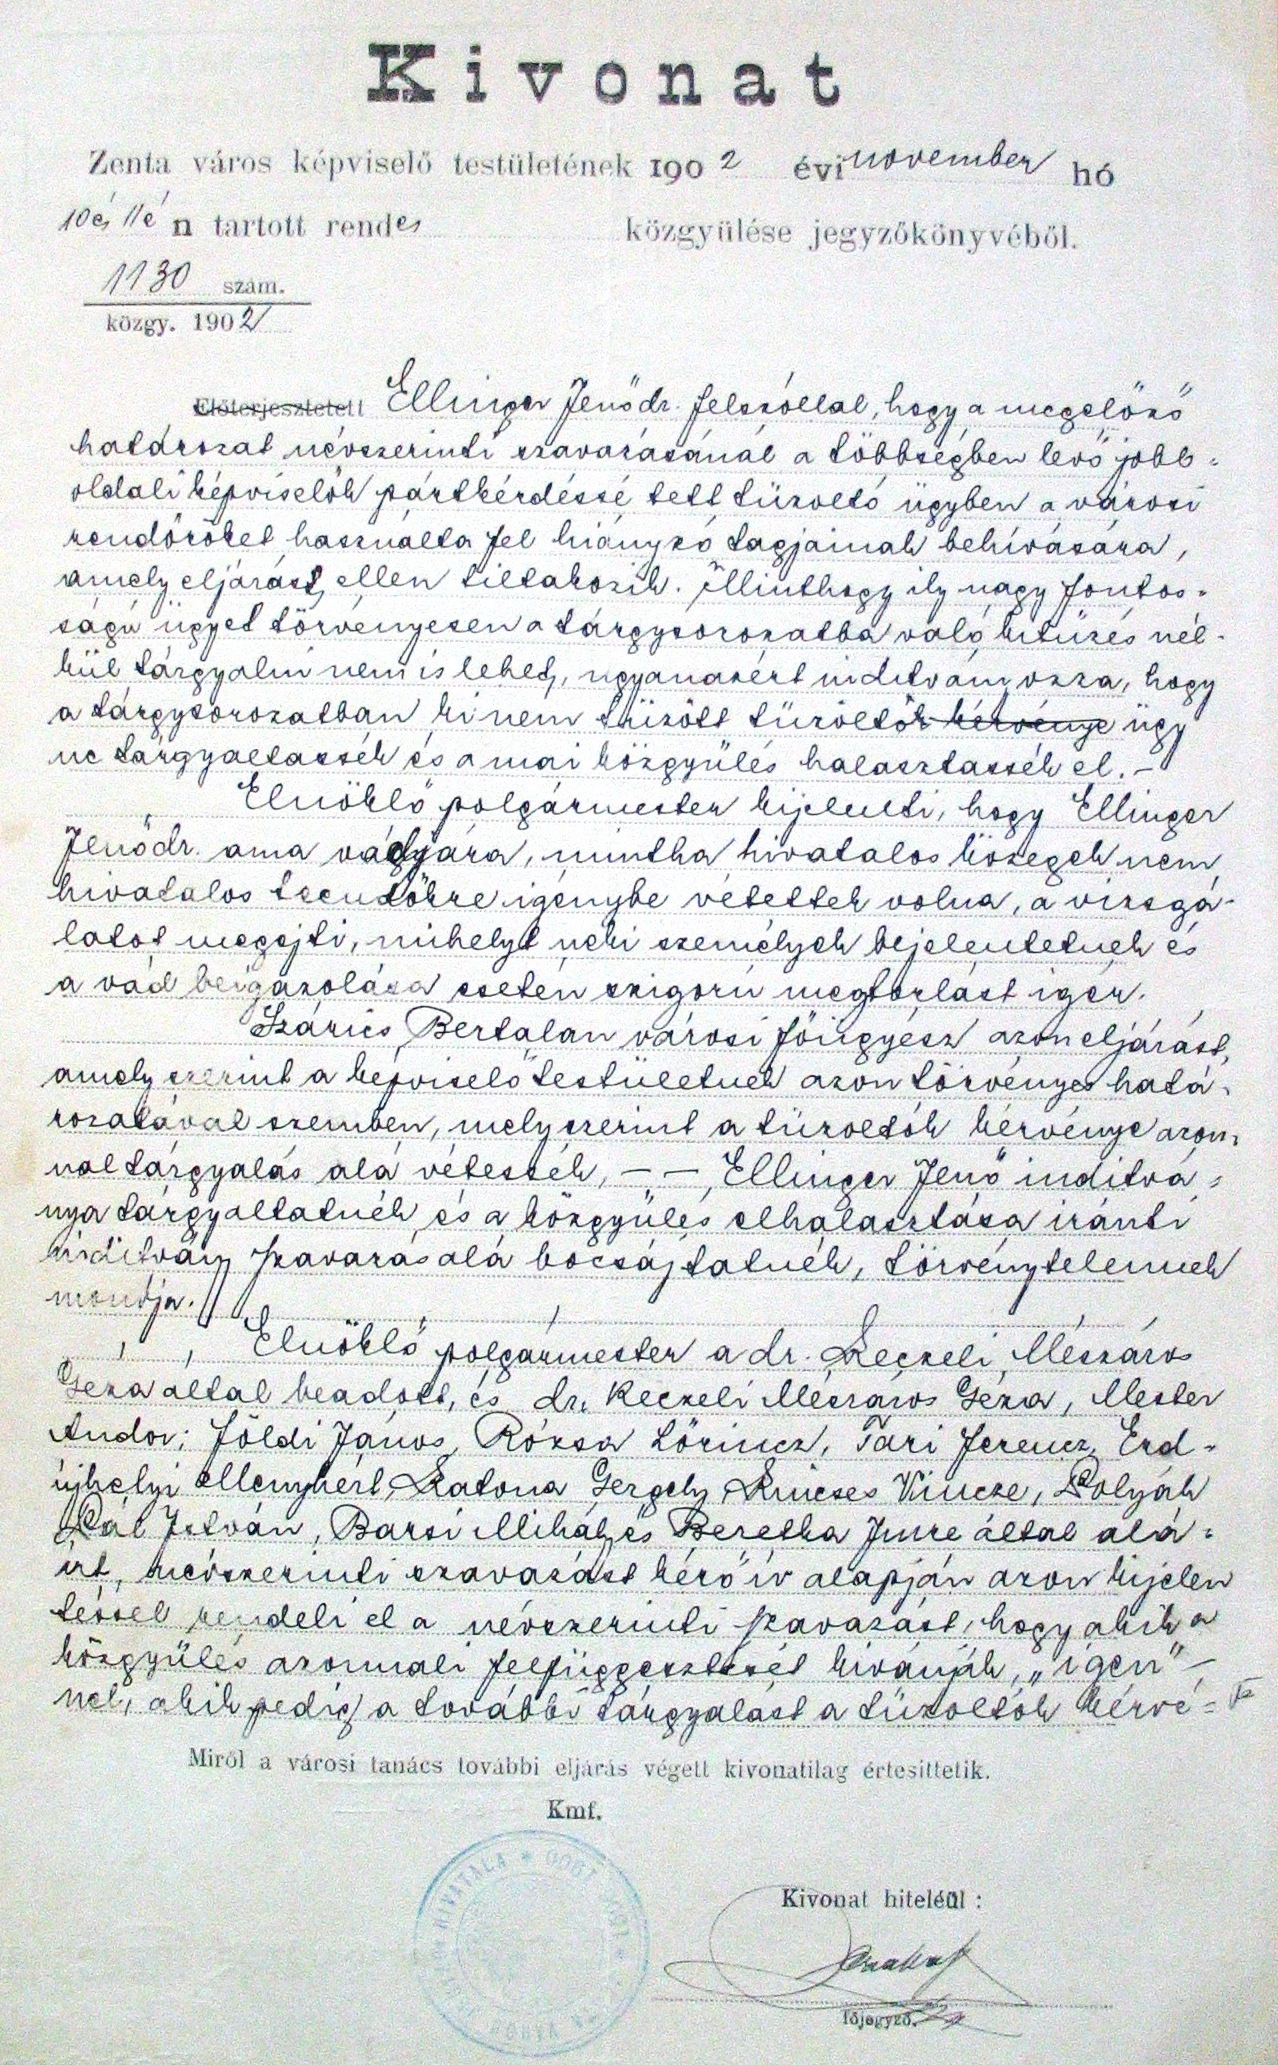 Kivonat
Zenta város képviselő testületének 1902 évi november hó
10 és 11én tartott rendes közgyülése jegyzőkönyvéből.
1130 szám.
közgy. 1902
Előterjesztetett Ellinger Jenő dr. felszóllal, hogy a megelőző
határozat névszerinti szavazásánál a többségben levő jobb-
oldali képviselők pártkérdéssé tett tüzoltó ügyben a városi
rendőröket használta fel hiányzó tagjainak behívására,
amely eljárást ellen tiltakozik. Minthogy ily nagy fontos-
ságú ügyet törvényesen a tárgysorozatba való kitüzés nél-
kül tárgyalni nem is lehet, ugyanazért inditványozza, hogy
a tárgysorozatban ki nem tüzött tüzoltók kérvénye ügy
ne tárgyaltassék és a mai közgyülés halasztassék el. –
Elnöklő polgármester kijelenti, hogy Ellinger
Jenő dr. ama vádjára, mintha hivatalos közegek nem
hivatalos teendőkre igénybe vétettek volna, a vizsgá-
latot megejti, mihelyt neki személyek bejelentetnek és
a vád beigazolása esetén szigorú megtorlást igér.
Szárics Bertalan városi főügyész azon eljárást,
amely szerint a képviselő testületnek azon törvényes hatá-
rozatával szemben, mely szerint a tüzoltók kérvénye azon-
nal tárgyalás alá vétessék, – – Ellinger Jenő inditvá-
nya tárgyaltatnék és a közgyülés elhalasztása iránti
inditvány szavazás alá bocsájtatnék, törvénytelennek
mondja.
Elnöklő polgármester a dr. Keczeli Mészáros
Géza által beadott, és dr. Keczeli Mészáros Géza, Mester
Andor, Földi János, Rózsa Lőrincz, Tari Ferencz, Erd-
újhelyi Menyhért, Katona Gergely, Kincses Vincze, Polyák
Pál István, Barsi Mihály és Beretka Imre által alá-
irt, névszerinti szavazást kérő ív alapján azon kijelen
téssel rendeli el a névszerinti szavazást, hogy akik a
közgyülés azonnali felfüggesztését kivánják, „igen"–
nel, akik pedig a további tárgyalást a tüzoltók kérvé-
Miről a városi tanács további eljárás végett kivonatilag értesittetik.
Kmf.
HIVATALA
Kivonat hiteléül:
főjegyző.